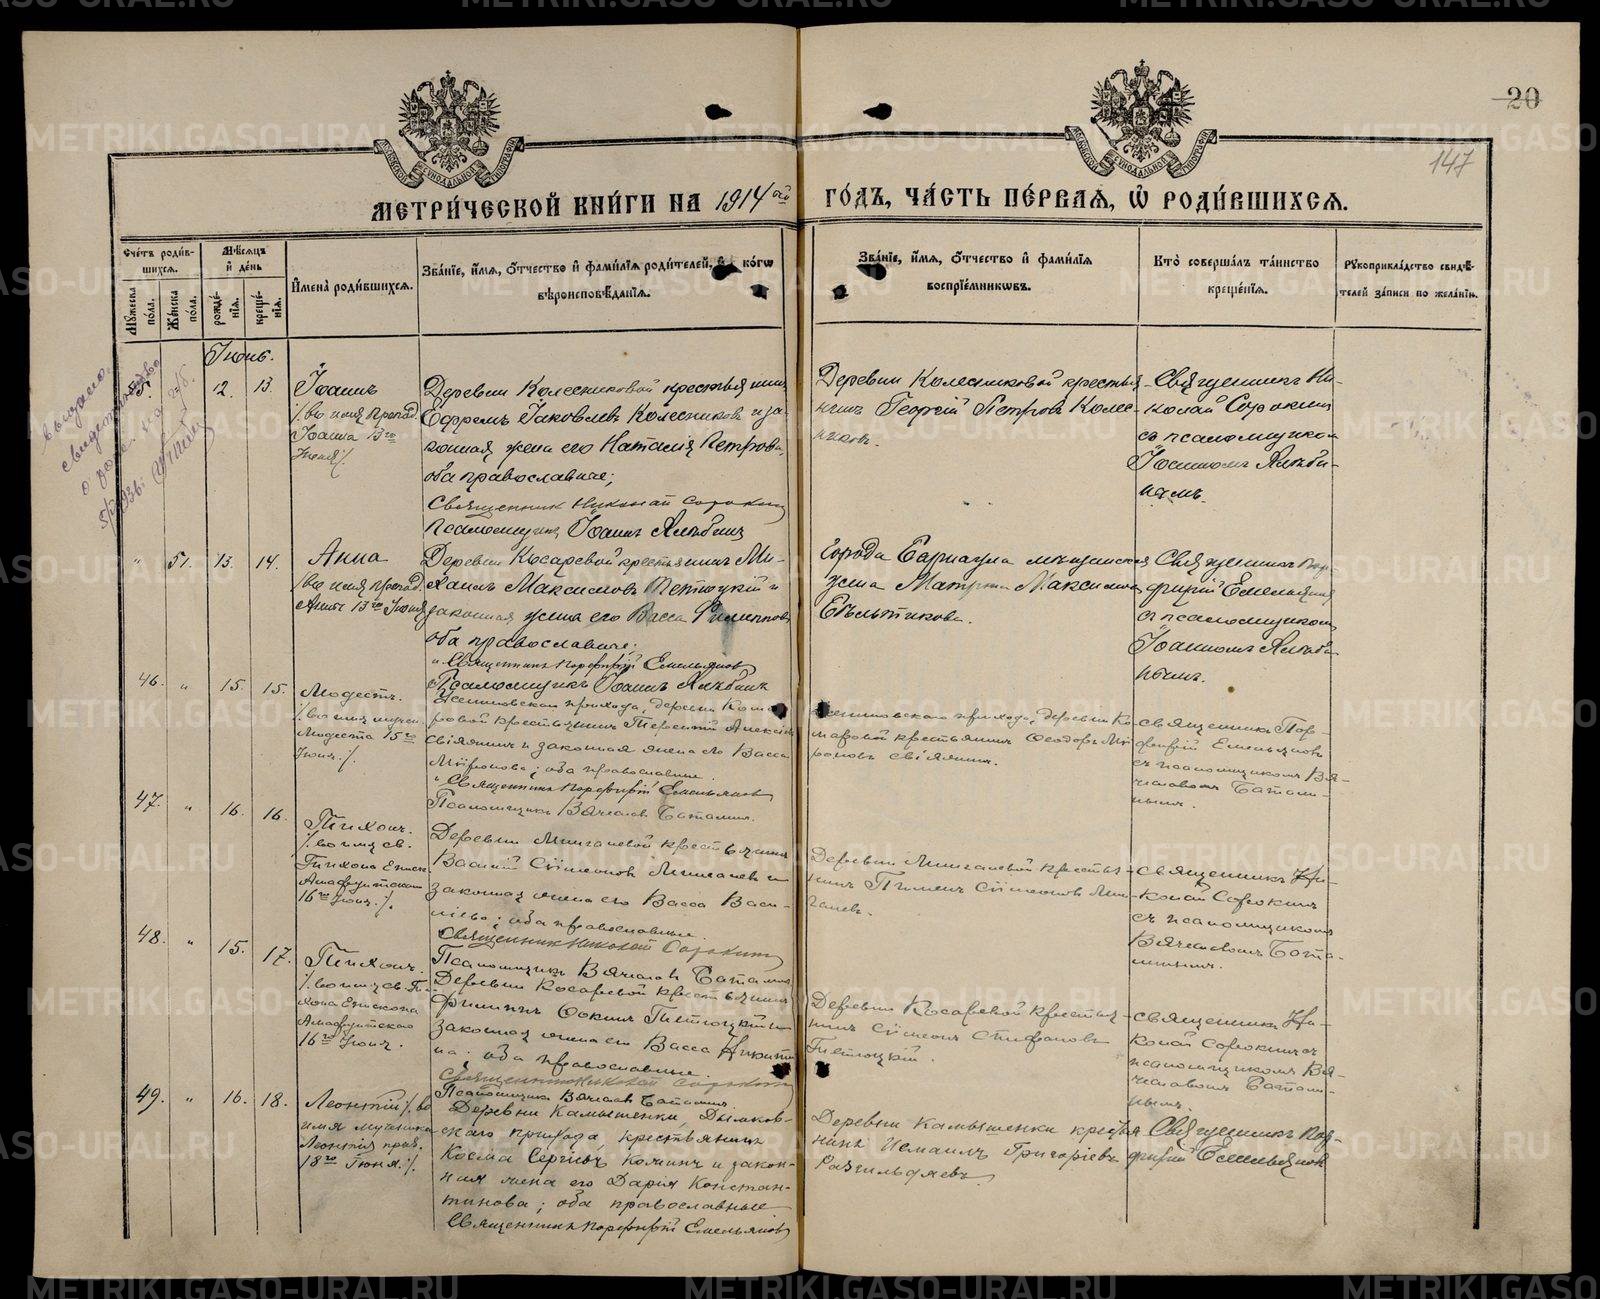 20
147
МЕТРИЧЕСКОЙ КНИГИ НА 1914ой ГОДЪ, ЧАСТЬ ПЕРВАЯ, Ѡ РОДИВШИХСЯ.
Счетъ родив-
шихся.
Мужеска пола.
Женска пола.
Мѣсяцъ
и день
рожде-
нія.
креще-
нія.
Имена родившихся.
Званіе, имя, отчество и фамилія родителей, и какогѡ
вѣроисповѣданія.
Званіе, имя, отчество и фамилія
воспріемникѡвъ.
Кто совершалъ таинство
крещенія.
Рукоприкладство свидѣ-
телей записи по желанію.
Іюнь.
выдано
свидетельство
45.
12.
13.
Іоаннъ
/во имя препод.
Іоанна 13го
Іюня/.
Деревни Колесниковой крестьянинъ
Ефремъ Іаковлевъ Колесниковъ и за-
конная жена его Наталія Петрова,
оба православные;
Священникъ Николай Сорокинъ
Псаломщикъ Іоаннъ
Деревни Колесниковой крестья-
нинъ Георгій Петровъ Колес-
никовъ.
Священникъ Ни-
колай Сорокинъ
съ псаломщикомъ
Іоанномъ
"
51.
13.
14.
Анна
/во имя препод.
Анны 13го Іюня
Деревни Косаревой крестьянинъ Ми-
хаилъ Максимовъ Петюцкій и
законная жена его Васса Филиппова
оба православные;
Священникъ Порфирій Емельяновъ
Псаломщикъ Іоаннъ
города Барнаула мѣщанская
Матрона Максимова
Священникъ Пор-
фирій Емельяновъ
съ псаломщикомъ
Іоанномъ
46.
"
15.
15.
Модестъ.
/во имя мучен.
Модеста 15го
Іюня./.
прихода, деревни Кома-
ровой крестьянинъ Терентій
и законная жена его Васса
Миронова; оба православные.
Священникъ Порфирій Емельяновъ
Псаломщикъ Вячеславъ
прихода, деревни Ко-
маровой крестьянинъ Ѳеодоръ Ми-
роновъ
Священникъ Пор-
фирій Емельяновъ
съ псаломщикомъ Вя-
чеславомъ
47.
"
16.
16.
Тихонъ.
/во имя св.
Тихона Епис.
Амафунтскаго
16го Іюня./.
Деревни Мингалевой крестьянинъ
Василій Симеоновъ Мингалевъ и
законная жена его Васса Васи-
ліева; оба православные.
Священникъ Николай Сорокинъ
Псаломщикъ Вячеславъ
Деревни Мингалевой крестья-
нинъ Пименъ Симеоновъ Мин-
галевъ.
Священникъ Ни-
колай Сорокинъ
съ псаломщикомъ
Вячеславомъ
48.
"
15.
17.
Тихонъ.
/во имя св. Ти-
хона Епископа
Амафунтскаго
16го Іюня.
Деревни Косаревой крестьянинъ
Филиппъ Фокинъ Петюцкій и
законная жена его Васса Никити-
на; оба православные.
Священникъ Николай Сорокинъ
Псаломщикъ Вячеславъ
Деревни Косаревой крестья-
нинъ Симеонъ Стефановъ
Петюцкій.
Священникъ Ни-
колай Сорокинъ съ
псаломщикомъ Вя-
чеславомъ
49.
"
16.
18.
Леонтій /. во
имя мученика
Леонтія празд.
18го Іюня./.
Деревни Камышенки,
прихода, крестьянинъ
Косма Сергіевъ и закон-
ная жена его Дарья Констан-
тинова; оба православные
Священникъ Порфирій Емельяновъ
Деревни Камышенки крестья-
нинъ Исмаилъ Григоріевъ
Разгильдяевъ
Священникъ Пор-
фирій Емельяновъ
METRIKI.GASO-URAL.RU